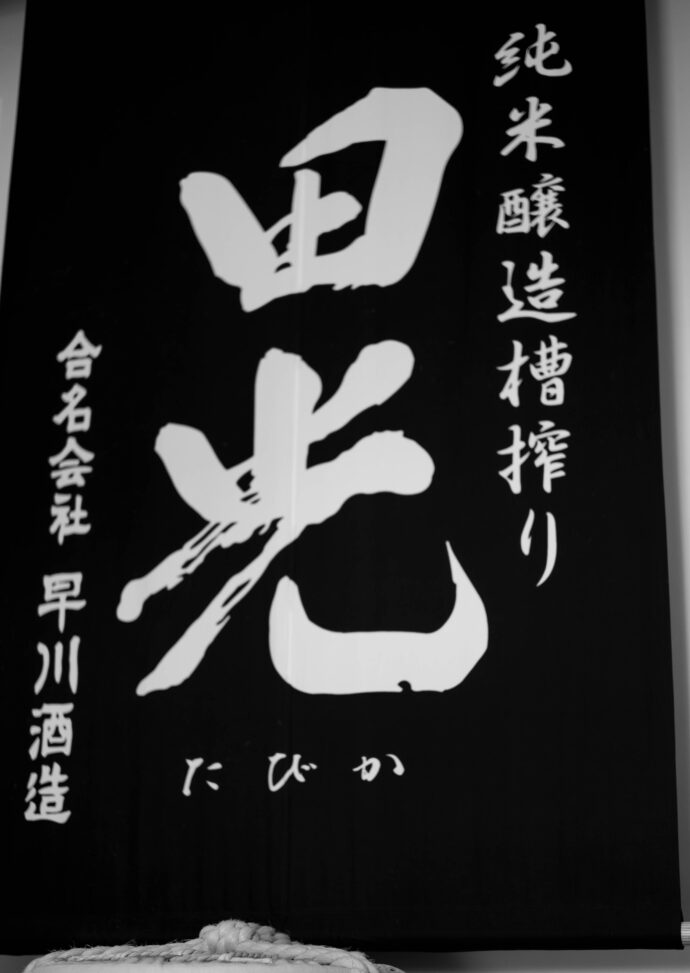 純米醸造槽搾り
田光
たびか
合名会社 早川酒造